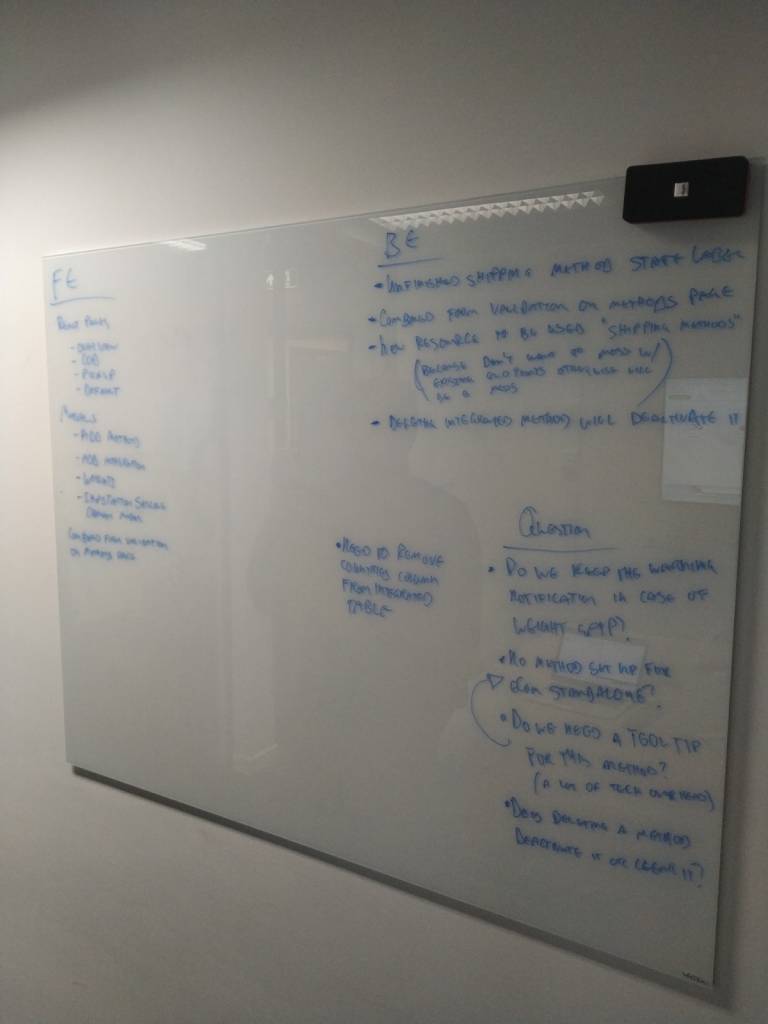 FE
- OVERVIEW
- COD
- PICKUP
- DEFAULT
MODALS
- ADD METHOD
- UPDATE
COMBINED FORM VALIDATION
ON METHODS PAGE
BE
- UNFINISHED SHIPPING METHOD STATE LABEL
- COMBINED FORM VALIDATION ON METHODS PAGE
- NEW RESOURCE TO BE USED "SHIPPING METHODS"
(BECAUSE DON'T WANT TO MESS W/
EXISTING ENDPOINTS OTHERWISE WILL
BE A MESS)
- DELETING INTEGRATED METHOD WILL DEACTIVATE IT
• NEED TO REMOVE
COUNTRIES COLUMN
FROM INTEGRATED
TABLE
QUESTION
• DO WE KEEP THE WARNING
NOTIFICATION IN CASE OF
WEIGHT GAP?
• NO METHOD SET UP FOR
ECOM STANDALONE?
• DO WE NEED A TOOLTIP
FOR THIS METHOD?
(A LOT OF TECH OVERHEAD)
• DOES DELETING A METHOD
DEACTIVATE IT OR CLEAR IT?